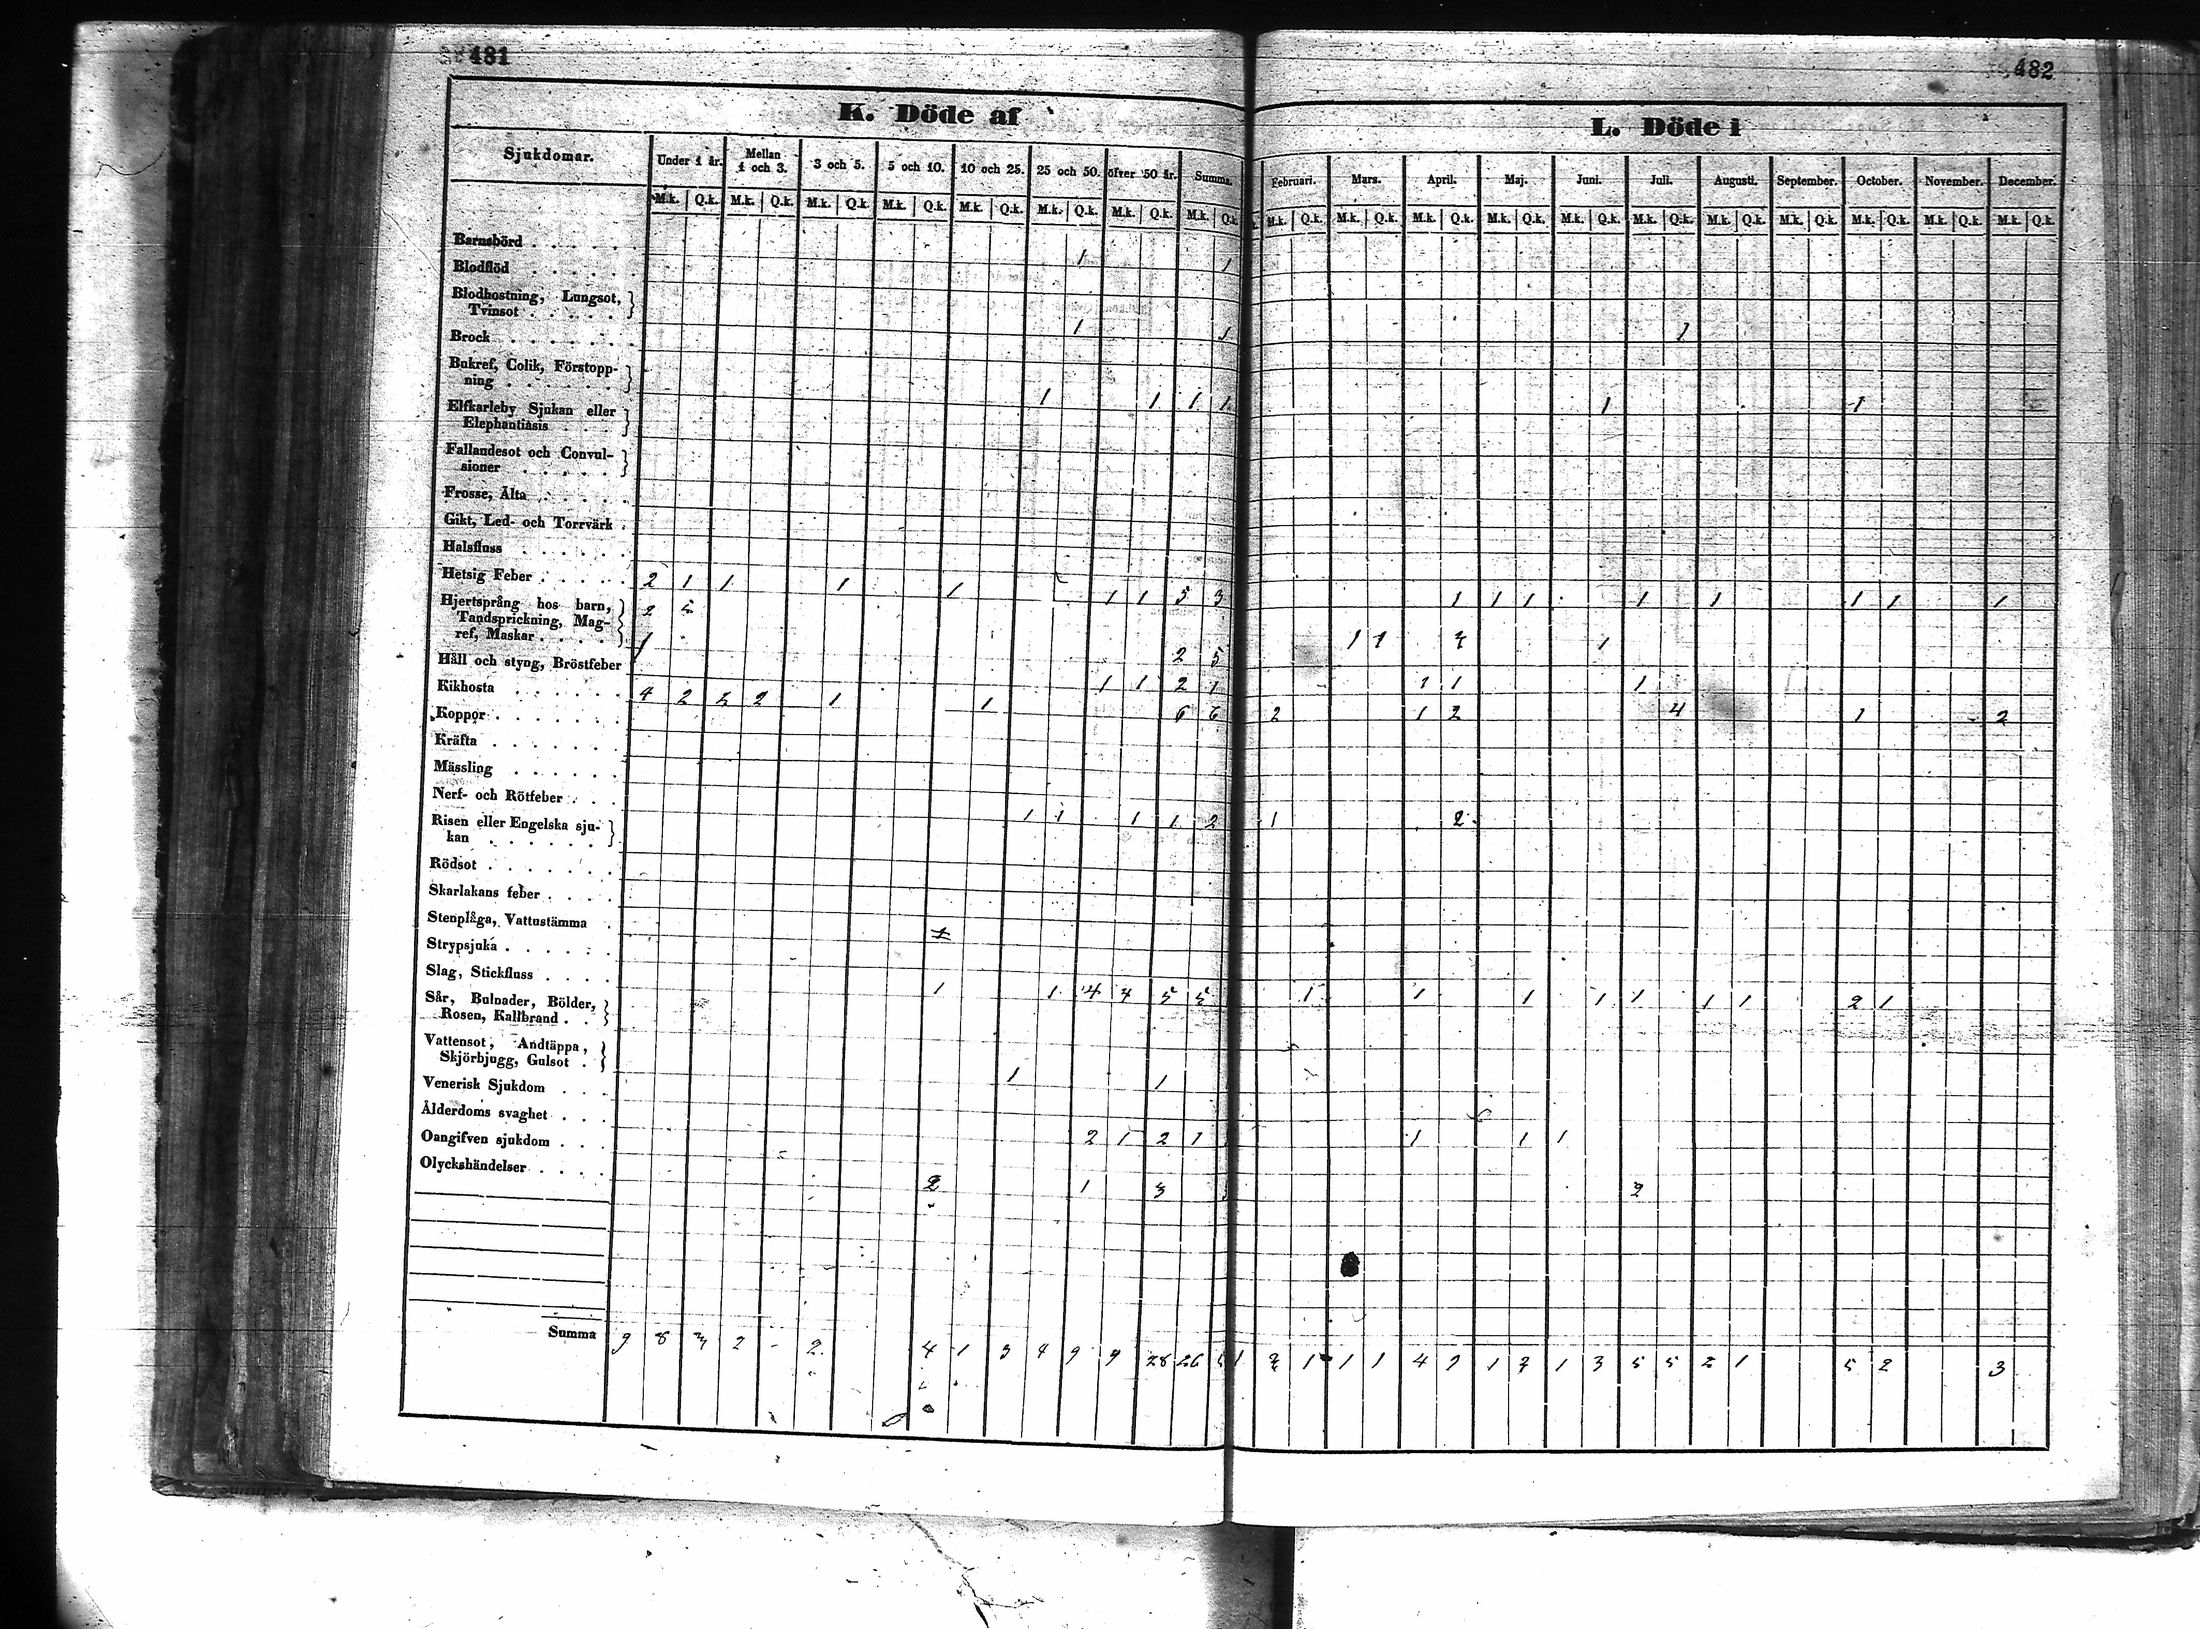 481
482
K. Döde af
L. Döde i
Sjukdomar.
Under 1 år. Mellan 1 och 3. 3 och 5. 5 och 10. 10 och 25. 25 och 50. öfver 50 år. Summa.
Februari. Mars. April. Maj. Juni. Juli. Augusti. September. October. November. December.
M.k. Q.k. M.k. Q.k. M.k. Q.k. M.k. Q.k. M.k. Q.k. M.k. Q.k. M.k. Q.k. M.k. Q.k.
M.k. Q.k. M.k. Q.k. M.k. Q.k. M.k. Q.k. M.k. Q.k. M.k. Q.k. M.k. Q.k. M.k. Q.k. M.k. Q.k. M.k. Q.k. M.k. Q.k.
Barnsbörd
1 1
Blodflöd
Blodhostning, Lungsot,
Tvinsot
1 1 1
Brock
Bukref, Colik, Förstopp-
ning
1 1 1 1 1 1
Elfkarleby Sjukan eller
Elephantiasis
Fallandesot och Convul-
sioner
Frosse, Älta
Gikt, Led- och Torrvärk
Halsfluss
Hetsig Feber
2 1 1 1 1 1 1 5 3 1 1 1 1 1 1 1 1
Hjertsprång hos barn,
Tandsprickning, Mag-
ref, Maskar
2 5 2 5 1 1 1
Håll och styng, Bröstfeber
1 1 1 2 1 1 1 1
Kikhosta
4 2 2 2 1 1 6 6 2 1 2 4 1 2
Koppor
Kräfta
Mässling
Nerf- och Rötfeber
1 1 1 1 2 1 2
Risen eller Engelska sju-
kan
Rödsot
Skarlakans feber
Stenplåga, Vattustämma
Strypsjuka
Slag, Stickfluss
1 1 4 4 5 5 1 1 1 1 1 1 1 2 1
Sår, Bulnader, Bölder,
Rosen, Kallbrand
Vattensot, Andtäppa,
Skjörbjugg, Gulsot
1 1
Venerisk Sjukdom
Ålderdoms svaghet
2 1 2 1 1 1 1
Oangifven sjukdom
Olyckshändelser
2 1 3 2
Summa
9 8 3 2 - 2 4 1 3 4 9 9 28 26 1 1 1 1 4 1 1 3 5 5 2 1 5 2 3